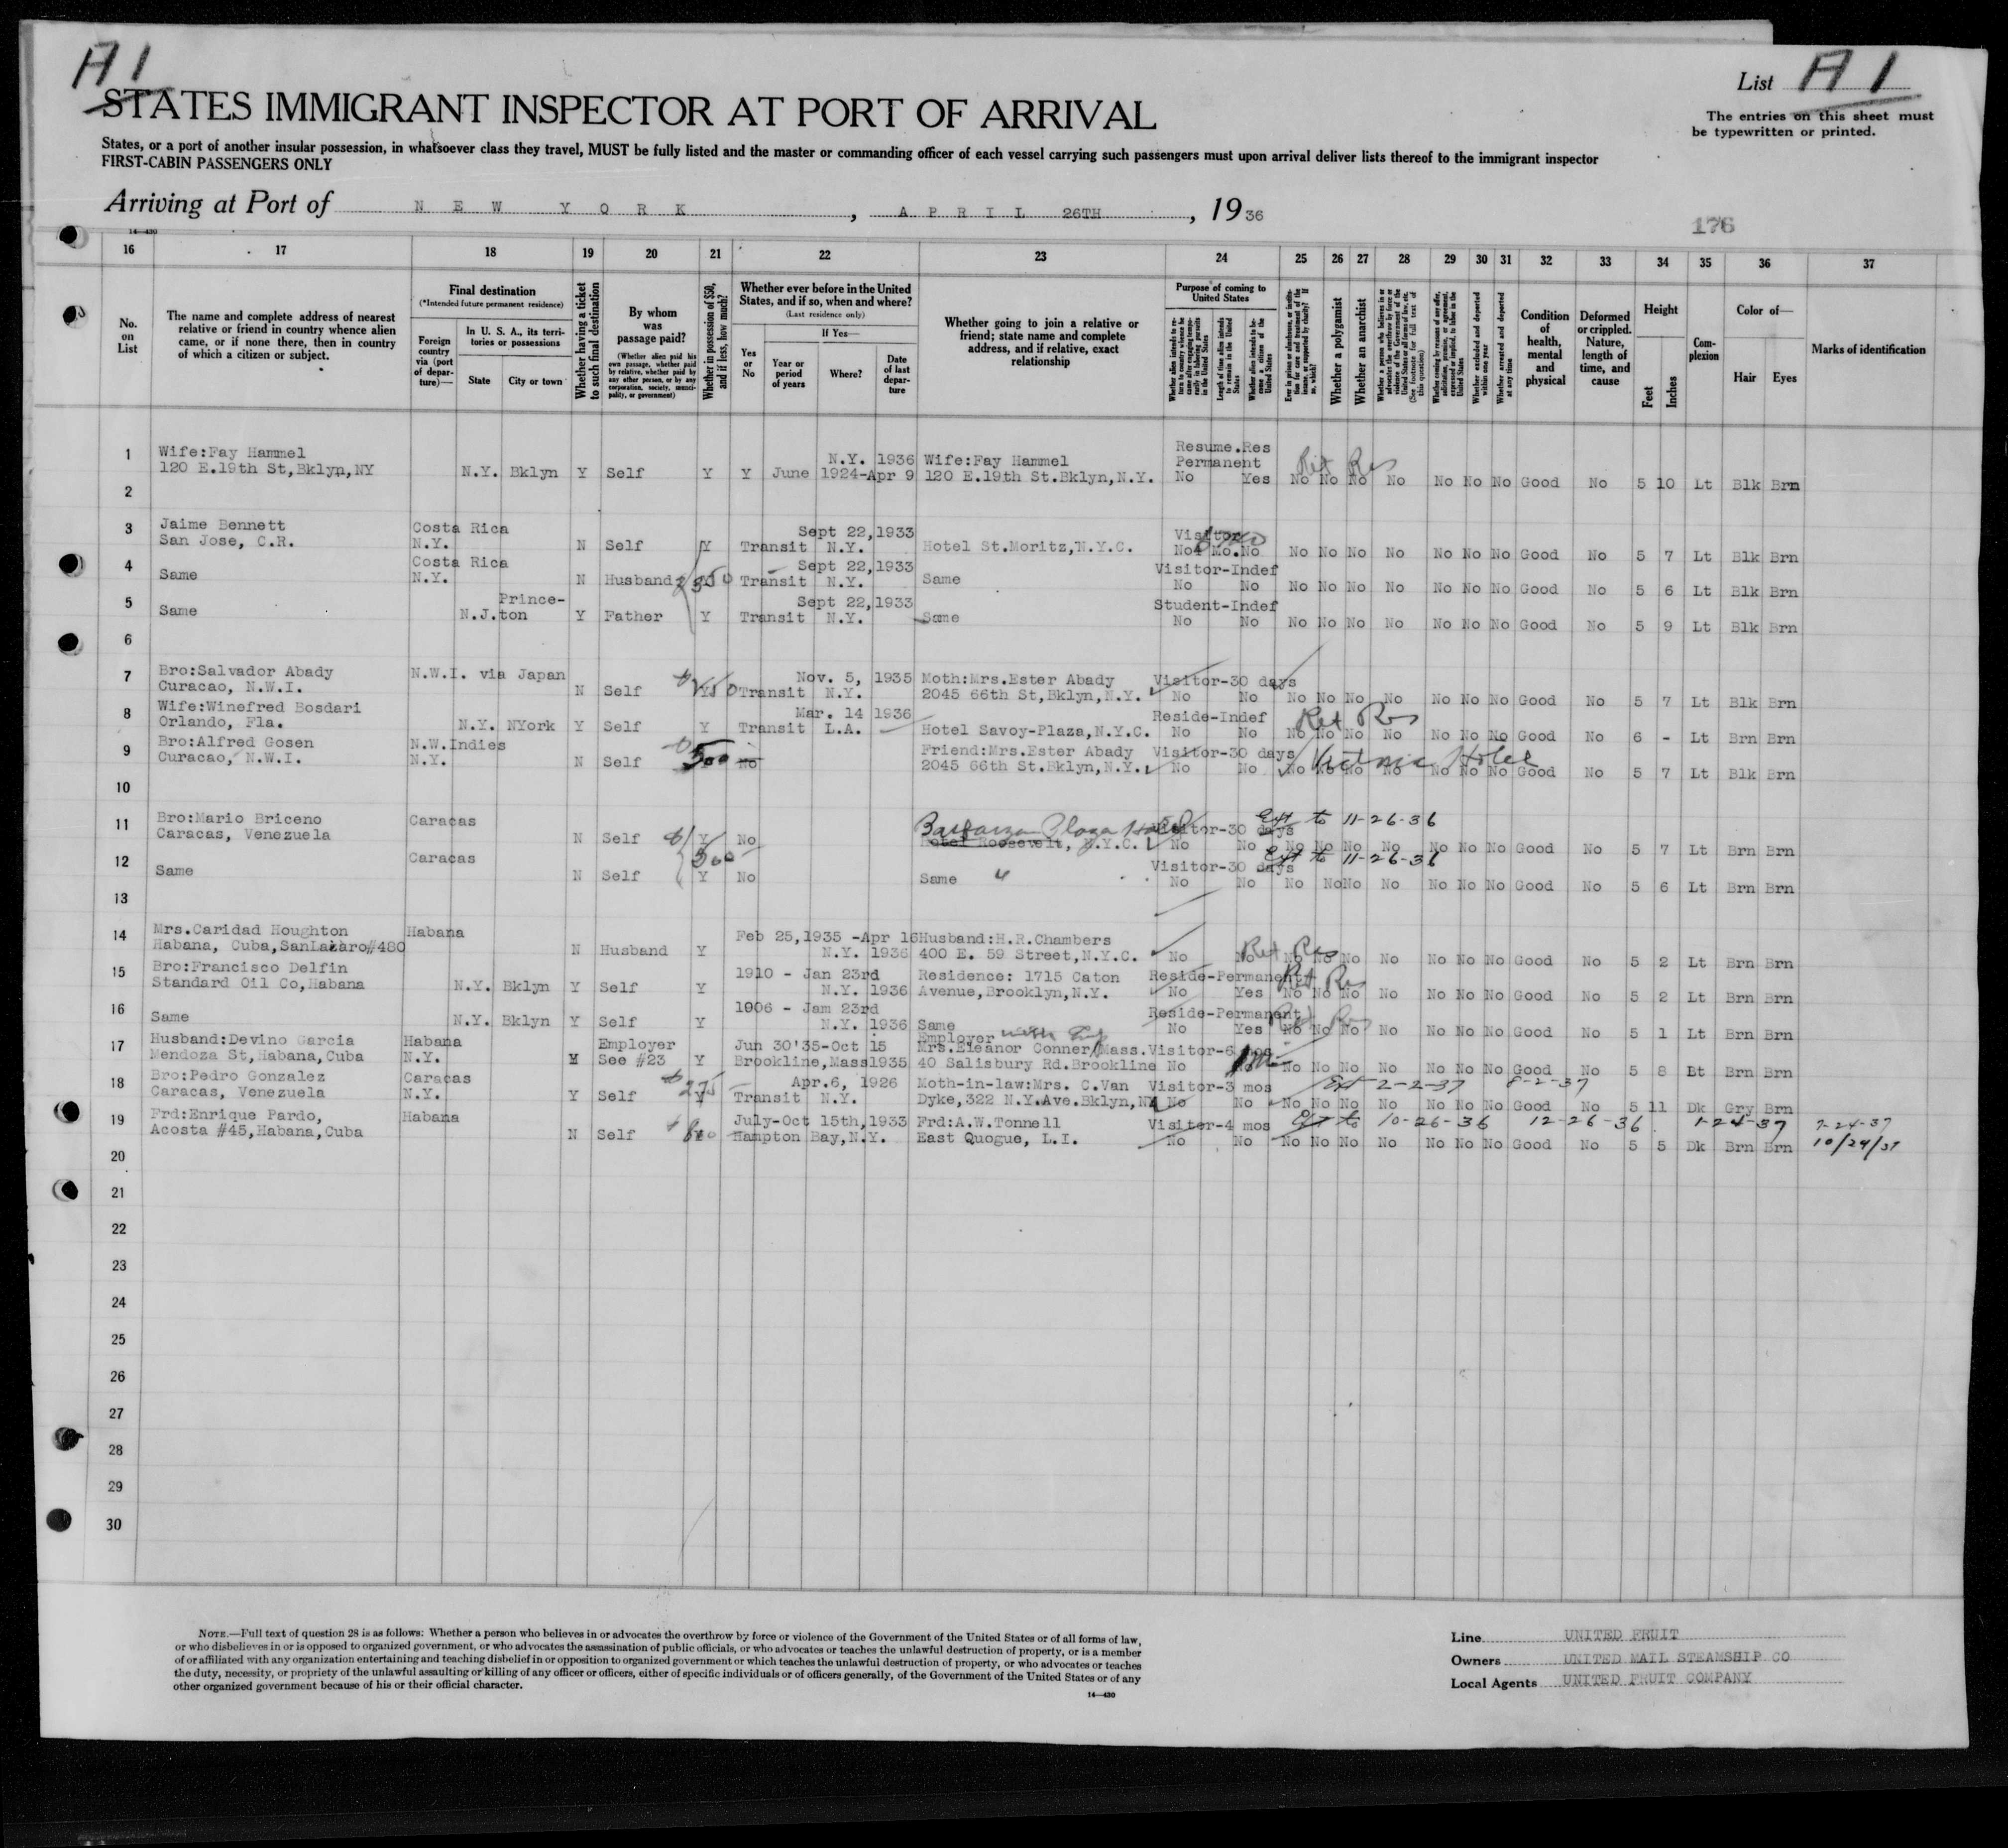 A 1
List A 1
STATES IMMIGRANT INSPECTOR AT PORT OF ARRIVAL
The entries on this sheet must
be typewritten or printed.
States, or a port of another insular possession, in whatsoever class they travel, MUST be fully listed and the master or commanding officer of each vessel carrying such passengers must upon arrival deliver lists thereof to the immigrant inspector
FIRST-CABIN PASSENGERS ONLY
Arriving at Port of NEW YORK, APRIL 26TH, 1936
176
14—430
16 17 18 19 20 21 22 23 24 25 26 27 28 29 30 31 32 33 34 35 36 37
No. on List
The name and complete address of nearest relative or friend in country whence alien came, or if none there, then in country of which a citizen or subject.
Final destination
(*Intended future permanent residence)
Foreign country via (port of departure)—
In U. S. A., its territories or possessions
State
City or town
Whether having a ticket to such final destination
By whom was passage paid?
(Whether alien paid his own passage, whether paid by relative, whether paid by any other person, or by any corporation, society, municipality, or government)
Whether in possession of $50, and if less, how much?
Whether ever before in the United States, and if so, when and where?
(Last residence only)
Yes or No
If Yes—
Year or period of years
Where?
Date of last departure
Whether going to join a relative or friend; state name and complete address, and if relative, exact relationship
Purpose of coming to United States
Whether alien intends to return to country whence he came after engaging temporarily in laboring pursuits in the United States
Length of time alien intends to remain in the United States
Whether alien intends to become a citizen of the United States
Ever in prison or almshouse, or institution for care and treatment of the insane, or supported by charity? If so, which?
Whether a polygamist
Whether an anarchist
Whether a person who believes in or advocates the overthrow by force or violence of the Government of the United States or all forms of law, etc. (See footnote for full text of this question)
Whether coming by reason of any offer, solicitation, promise, or agreement, expressed or implied, to labor in the United States
Whether excluded and deported within one year
Whether arrested and deported at any time
Condition of health, mental and physical
Deformed or crippled. Nature, length of time, and cause
Height
Feet
Inches
Complexion
Color of—
Hair
Eyes
Marks of identification
1 Wife:Fay Hammel N.Y. 1936 Wife:Fay Hammel Resume.Res Permanent Ret Res
120 E.19th St,Bklyn,NY N.Y. Bklyn Y Self Y Y June 1924-Apr 9 120 E.19th St.Bklyn,N.Y. No Yes No No No No No No No Good No 5 10 Lt Blk Brn
2
3 Jaime Bennett Costa Rica Sept 22,1933 Visitor
San Jose, C.R. N.Y. N Self Y Transit N.Y. Hotel St.Moritz,N.Y.C. No Mo.No No No No No No No No Good No 5 7 Lt Blk Brn
4 Costa Rica Sept 22,1933 Visitor-Indef
Same N.Y. N Husband 350 Transit N.Y. Same No No No No No No No No No Good No 5 6 Lt Blk Brn
5 Prince- Sept 22,1933 Student-Indef
Same N.J.ton Y Father Y Transit N.Y. Same No No No No No No No No No Good No 5 9 Lt Blk Brn
6
7 Bro:Salvador Abady N.W.I. via Japan Nov. 5, 1935 Moth:Mrs.Ester Abady Visitor-30 days
Curacao, N.W.I. N Self Transit N.Y. 2045 66th St,Bklyn,N.Y. No No No No No No No No No Good No 5 7 Lt Blk Brn
8 Wife:Winefred Bosdari Mar. 14 1936 Reside-Indef Ret Res
Orlando, Fla. N.Y. NYork Y Self Y Transit L.A. Hotel Savoy-Plaza,N.Y.C. No No No No No No No No No Good No 6 - Lt Brn Brn
9 Bro:Alfred Gosen N.W.Indies Friend:Mrs.Ester Abady Visitor-30 days Victoria Hotel
Curacao, N.W.I. N.Y. N Self 500 No 2045 66th St.Bklyn,N.Y. No No No No No No No No No Good No 5 7 Lt Blk Brn
10
11 Bro:Mario Briceno Caracas Barbizon Plaza Hotel Visitor-30 days Ext to 11-26-36
Caracas, Venezuela N Self Y No Hotel Roosevelt, N.Y.C. No No No No No No No No No Good No 5 7 Lt Brn Brn
12 Caracas 500 Visitor-30 days Ext to 11-26-36
Same N Self Y No Same " No No No No No No No No No Good No 5 6 Lt Brn Brn
13
14 Mrs.Caridad Houghton Habana Feb 25,1935 -Apr 16 Husband:H.R.Chambers Ret Res
Habana, Cuba,SanLazaro#480 N Husband Y N.Y. 1936 400 E. 59 Street,N.Y.C. No No No No No No No No No Good No 5 2 Lt Brn Brn
15 Bro:Francisco Delfin 1910 - Jan 23rd Residence: 1715 Caton Reside-Permanent Ret Res
Standard Oil Co,Habana N.Y. Bklyn Y Self Y N.Y. 1936 Avenue,Brooklyn,N.Y. No Yes No No No No No No No Good No 5 2 Lt Brn Brn
16 1906 - Jam 23rd Reside-Permanent Ret Res
Same N.Y. Bklyn Y Self Y N.Y. 1936 Same No Yes No No No No No No No Good No 5 1 Lt Brn Brn
17 Husband:Devino Garcia Habana Employer Jun 30'35-Oct 15 Employer Mrs.Eleanor Conner Mass. Visitor-6 mos
Mendoza St,Habana,Cuba N.Y. See #23 Y Brookline,Mass1935 40 Salisbury Rd.Brookline No No No No No No No No Good No 5 8 Lt Brn Brn
18 Bro:Pedro Gonzalez Caracas 275 Apr.6, 1926 Moth-in-law:Mrs. C.Van Visitor-3 mos Ext 2-2-37 8-2-37
Caracas, Venezuela N.Y. Y Self Y Transit N.Y. Dyke,322 N.Y.Ave.Bklyn,NY No No No No No No No No No Good No 5 11 Dk Gry Brn
19 Frd:Enrique Pardo, Habana July-Oct 15th,1933 Frd:A.W.Tonnell Visitor-4 mos Ext to 10-26-36 12-26-36 1-24-37 7-24-37
Acosta #45,Habana,Cuba N Self Hampton Bay,N.Y. East Quogue, L.I. No No No No No No No No No Good No 5 5 Dk Brn Brn 10/24/37
20
21
22
23
24
25
26
27
28
29
30
NOTE.—Full text of question 28 is as follows: Whether a person who believes in or advocates the overthrow by force or violence of the Government of the United States or of all forms of law,
or who disbelieves in or is opposed to organized government, or who advocates the assassination of public officials, or who advocates or teaches the unlawful destruction of property, or is a member
of or affiliated with any organization entertaining and teaching disbelief in or opposition to organized government or which teaches the unlawful destruction of property, or who advocates or teaches
the duty, necessity, or propriety of the unlawful assaulting or killing of any officer or officers, either of specific individuals or of officers generally, of the Government of the United States or of any
other organized government because of his or their official character.
14—430
Line UNITED FRUIT
Owners UNITED MAIL STEAMSHIP CO
Local Agents UNITED FRUIT COMPANY